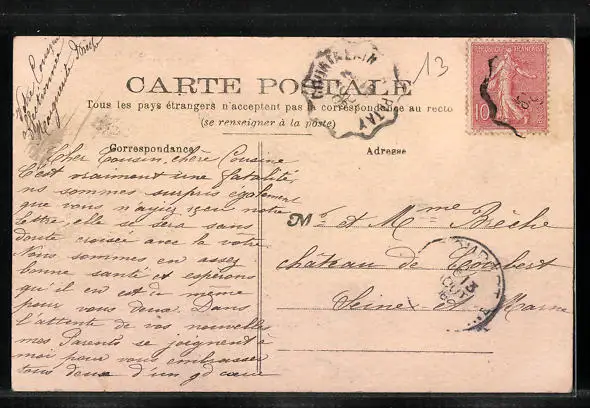 Votre Cousine
affectionnée
Marguerite Brèche
CARTE POSTALE
Tous les pays étrangers n'acceptent pas la correspondance au recto
(se renseigner à la poste)
Correspondance
Cher Cousin, chère Cousine
C'est vraiment une fatalité,
ns sommes surpris également
que vous n'ayiez reçu notre
lettre elle se sera sans
doute croisée avec la vôtre
Nous sommes en assez
bonne santé et espérons
qu'il en est de même
pour vous deux. Dans
l'attente de vos nouvelles
mes Parents se joignent à
moi pour vous embrasser
tous deux d'un gd cœur
Adresse
Mr et Mme Brèche
château de
Seine et Marne
13
COURTALAIN
PATAY
REPUBLIQUE FRANÇAISE
10